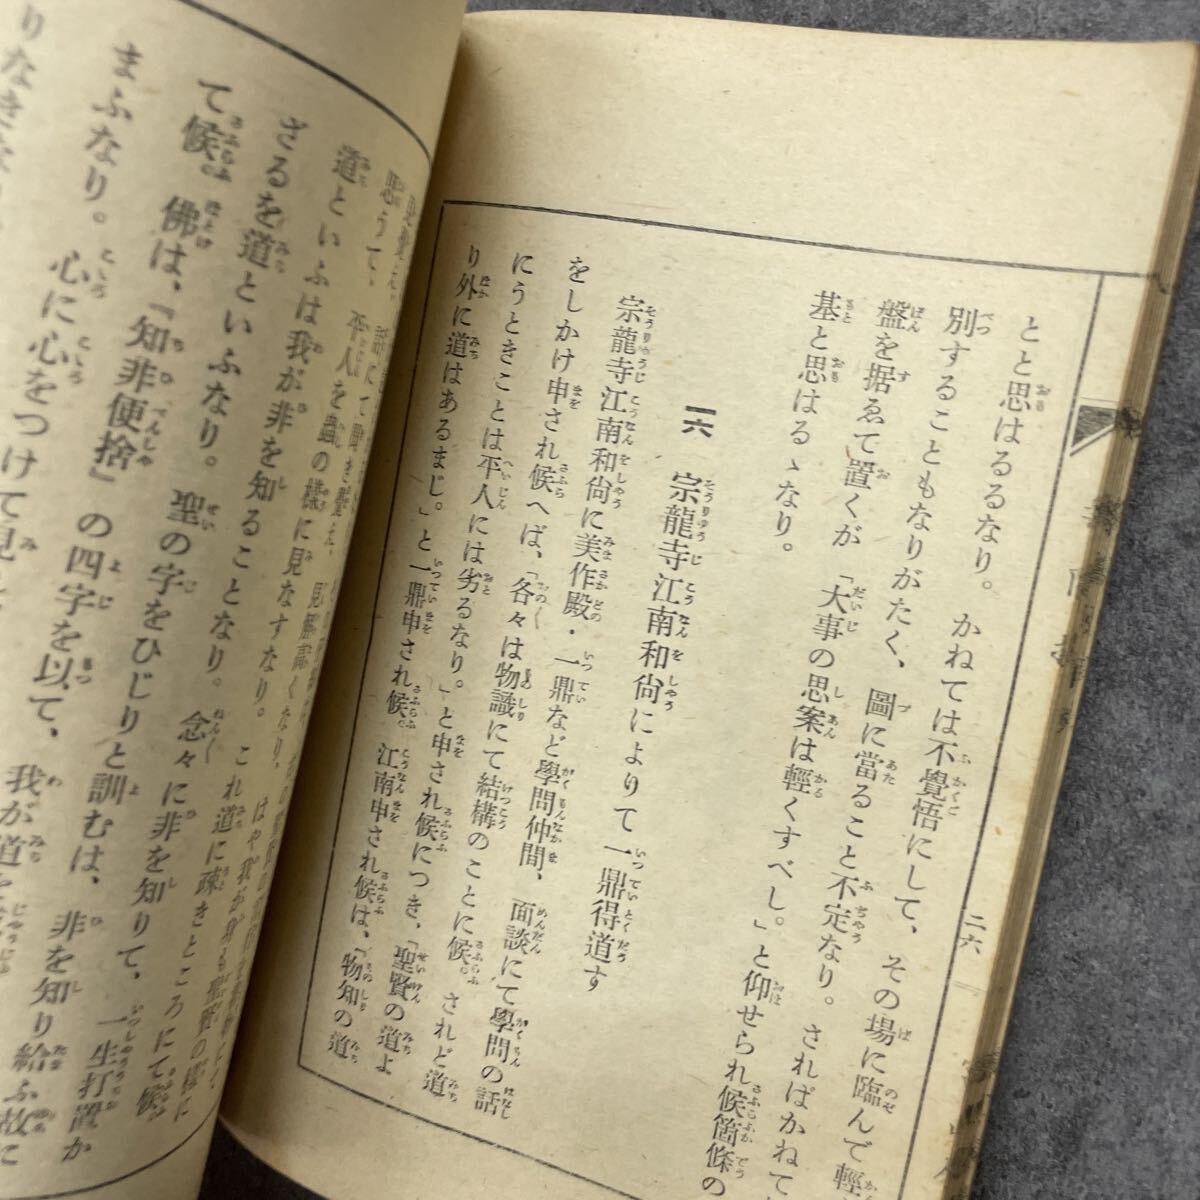 二六
とと思はるるなり。かねては不覺悟にして、その場に臨んで輕
別することもなりがたく、圖に當ること不定なり。さればかねて
盤を据ゑて置くが「大事の思案は輕くすべし。」と仰せられ候箇條の
基と思はるゝなり。
一六 宗龍寺江南和尙によりて一鼎得道す
宗龍寺江南和尙に美作殿・一鼎など學問仲間、面談にて學問の話
をしかけ申され候へば、「各々は物識にて結構のことに候。されど道
にうときことは平人には劣るなり。」と申され候につき、「聖賢の道よ
り外に道はあるまじ。」と一鼎申され候。江南申され候は、「物知の道
思うて、平人を蟲の樣に見なすなり。
道といふは我が非を知ることなり。念々に非を知りて、一生打置か
ざるを道といふなり。聖の字をひじりと訓むは、非を知り給ふ故に
て候。佛は、「知非便捨」の四字を以て、我が道を
まふなり。心に心をつけて見
りなきなり